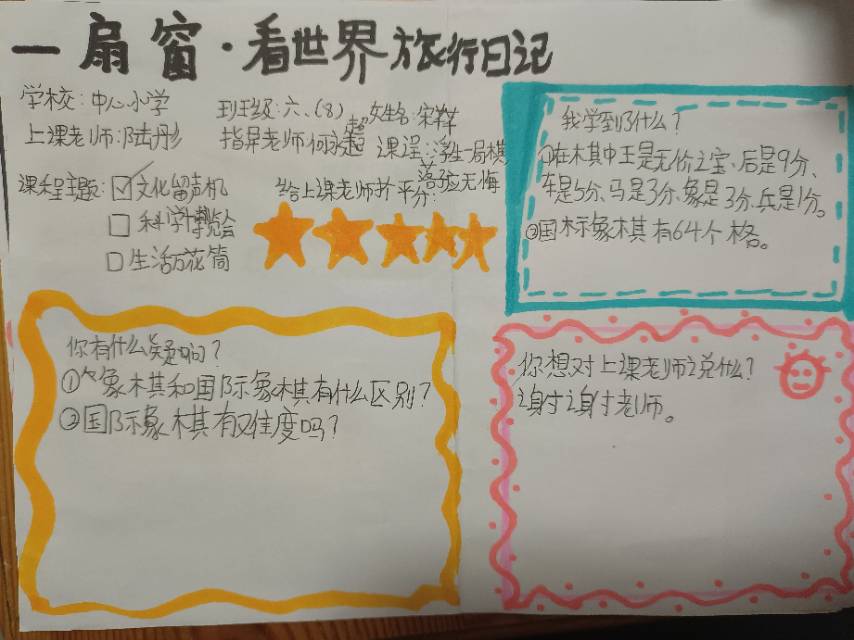 一扇窗·看世界旅行日记
学校:中心小学 班级:六、(8) 姓名:宋
上课老师:陆丹彤 指导老师何永超 课程:浮生一局棋
落子应无悔
课程主题:☑文化留声机 给上课老师打平分:
□科学博览会
□生活万花筒
我学到了什么?
①在木其中王是无价之宝、后是9分、
车是5分、马是3分、象是3分、兵是1分。
②国际象棋有64个格。
你有什么疑问?
①象棋和国际象棋有什么区别?
②国际象棋有难度吗?
你想对上课老师说什么?
谢谢老师。